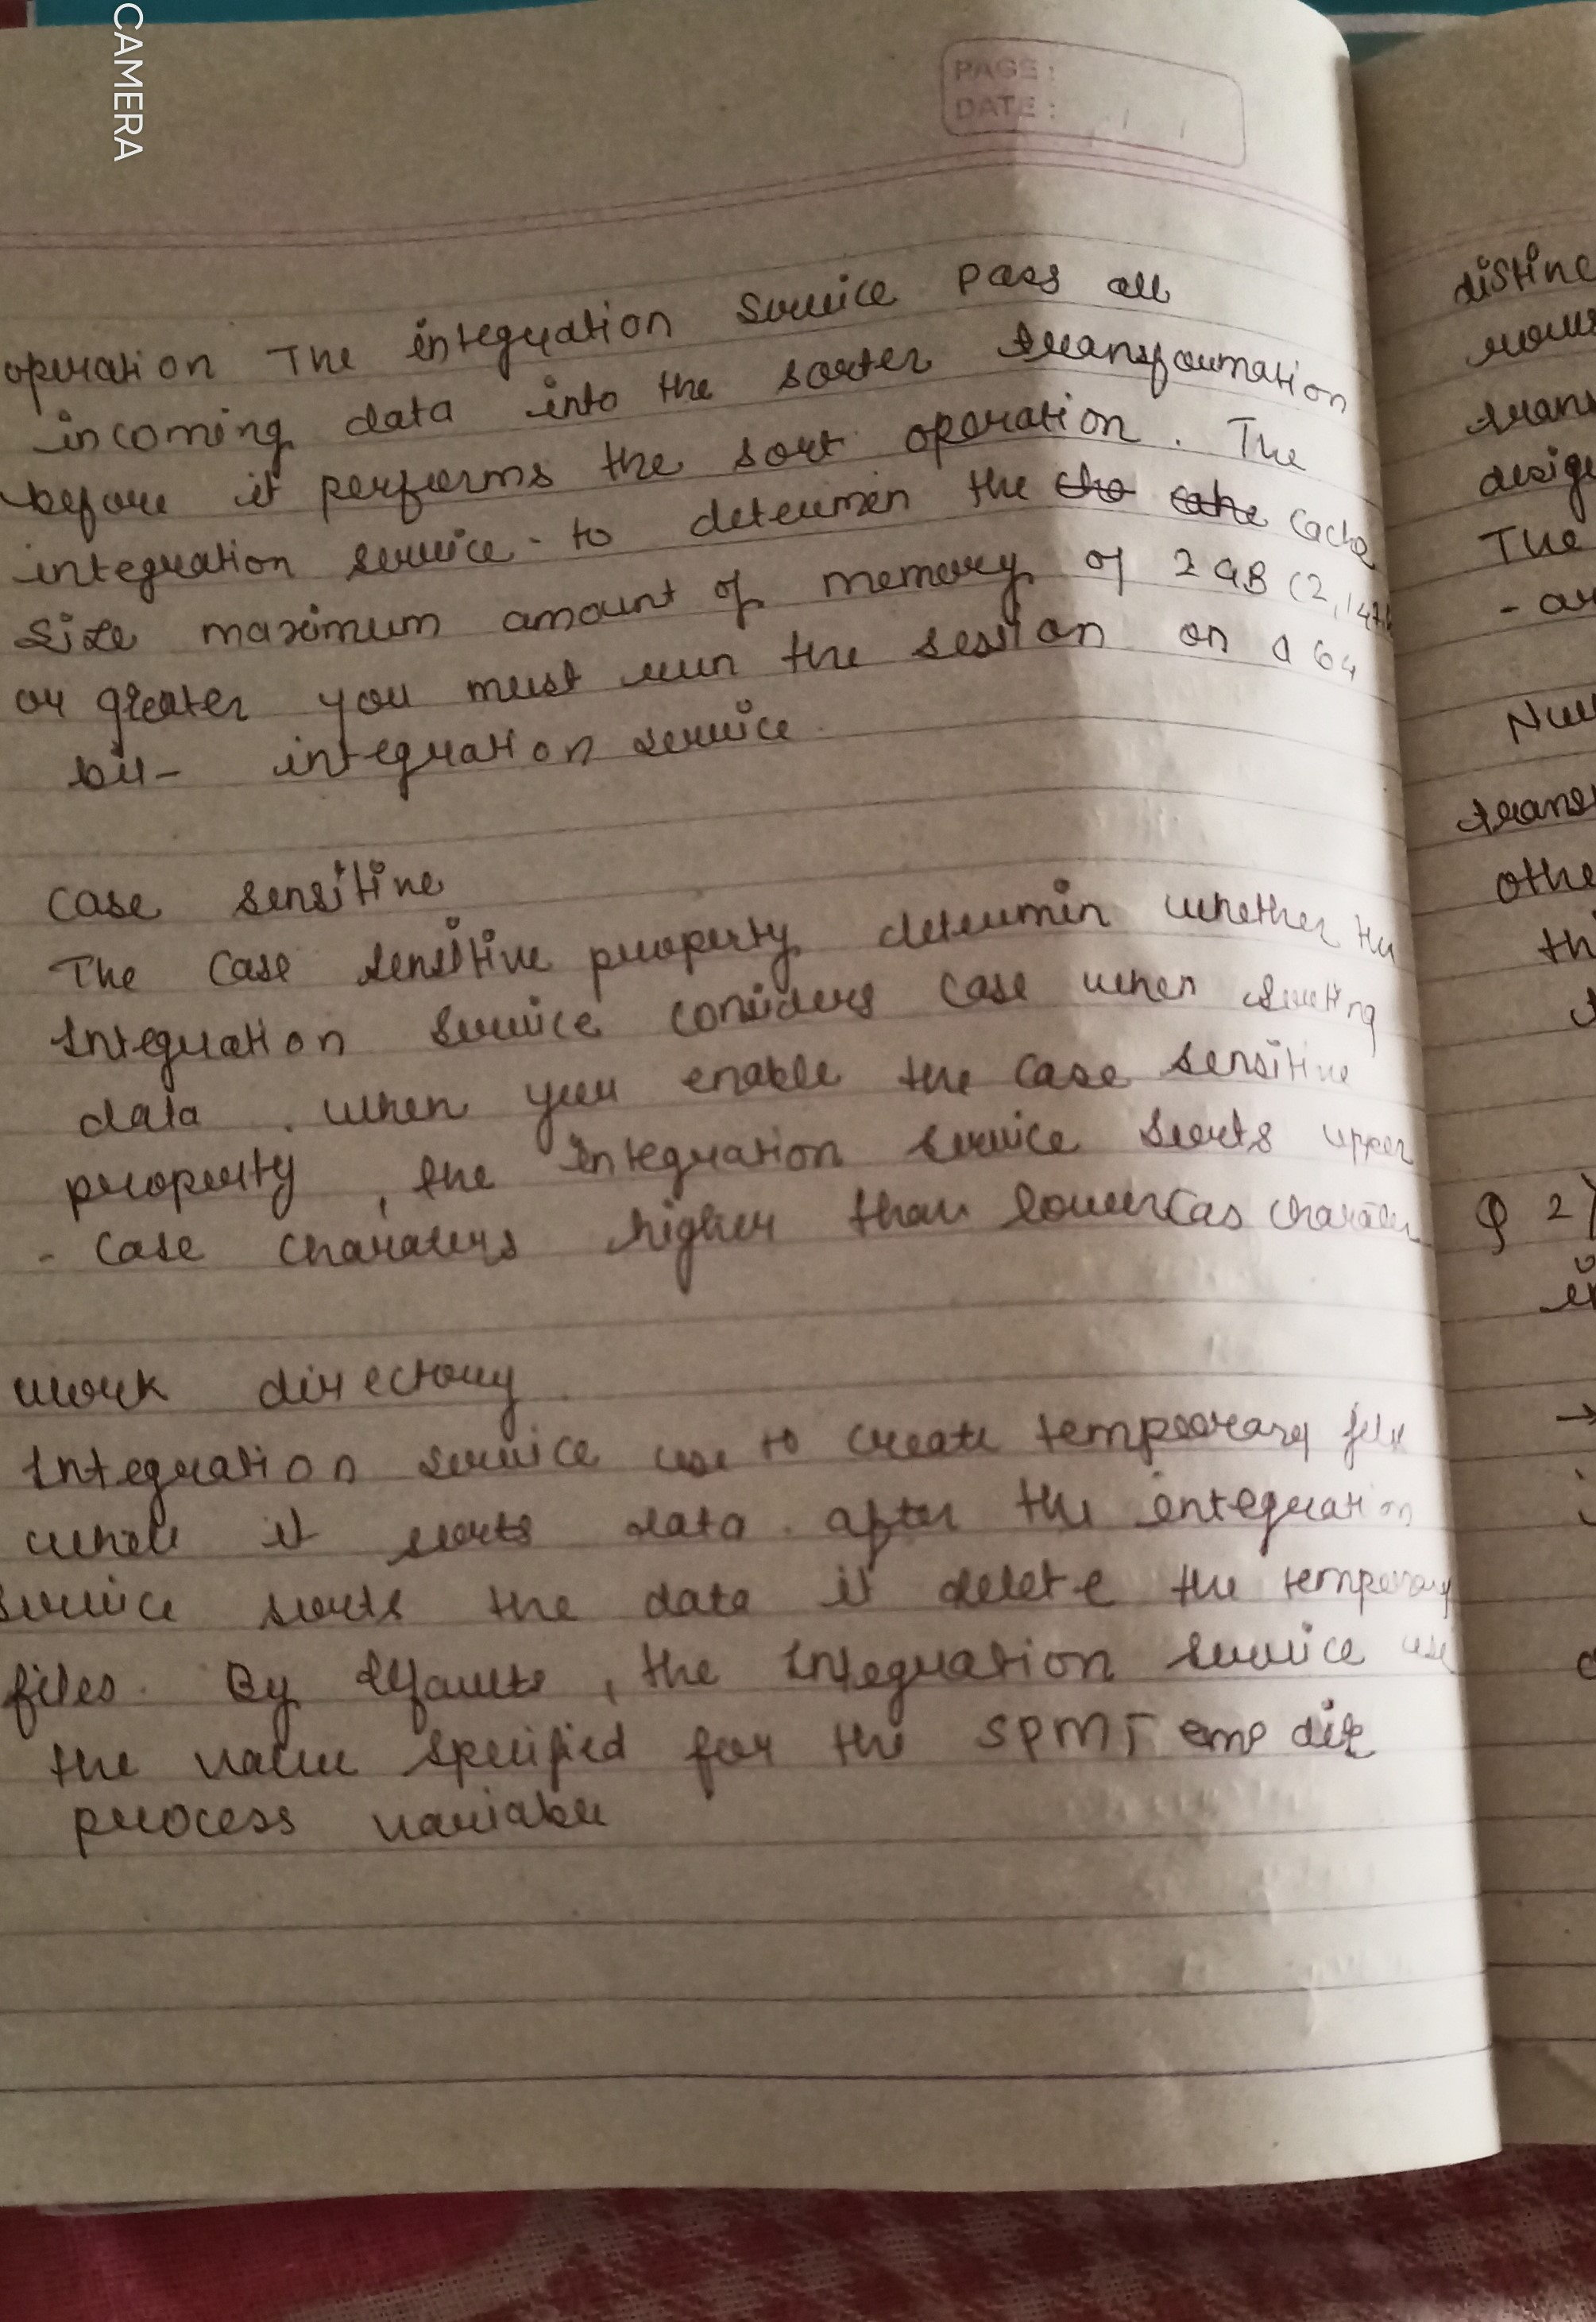 CAMERA
PAGE :
DATE :
operation The integration Service pass all
incoming data into the sorter transformation
before it performs the sort operation. The
integration service - to determen the cache
size maximum amount of memory of 2GB (2,147
or greater you must run the session on a 64
bit- integration service.
case sensitive
The case sensitive property determin whether the
Integration Service considers case when sorting
data . when you enable the case sensitive
property , the Integration service sorts upper
- case charaters higher than lowercas charater
work directory
Integration service use to create temporary files
while it sorts data. after the integration
service sorts the data it delete the temporary
files. By defaults , the Integration service use
the value specified for the SPMTemp dir
process variable
distinc
rows
trans
desig
The
- ar
Nul
trans
othe
th
Q 2)
in
→